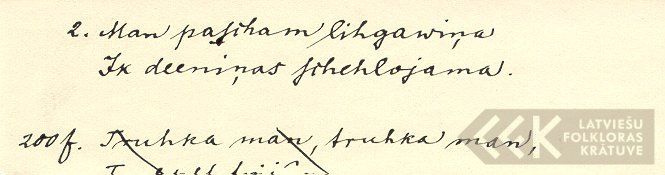 2. Man paſcham lihgawiņa
Ik deeniņas ſchehlojama.
200f. Truhka man, truhka man,
LATVIEŠU
FOLKLORAS
KRĀTUVE